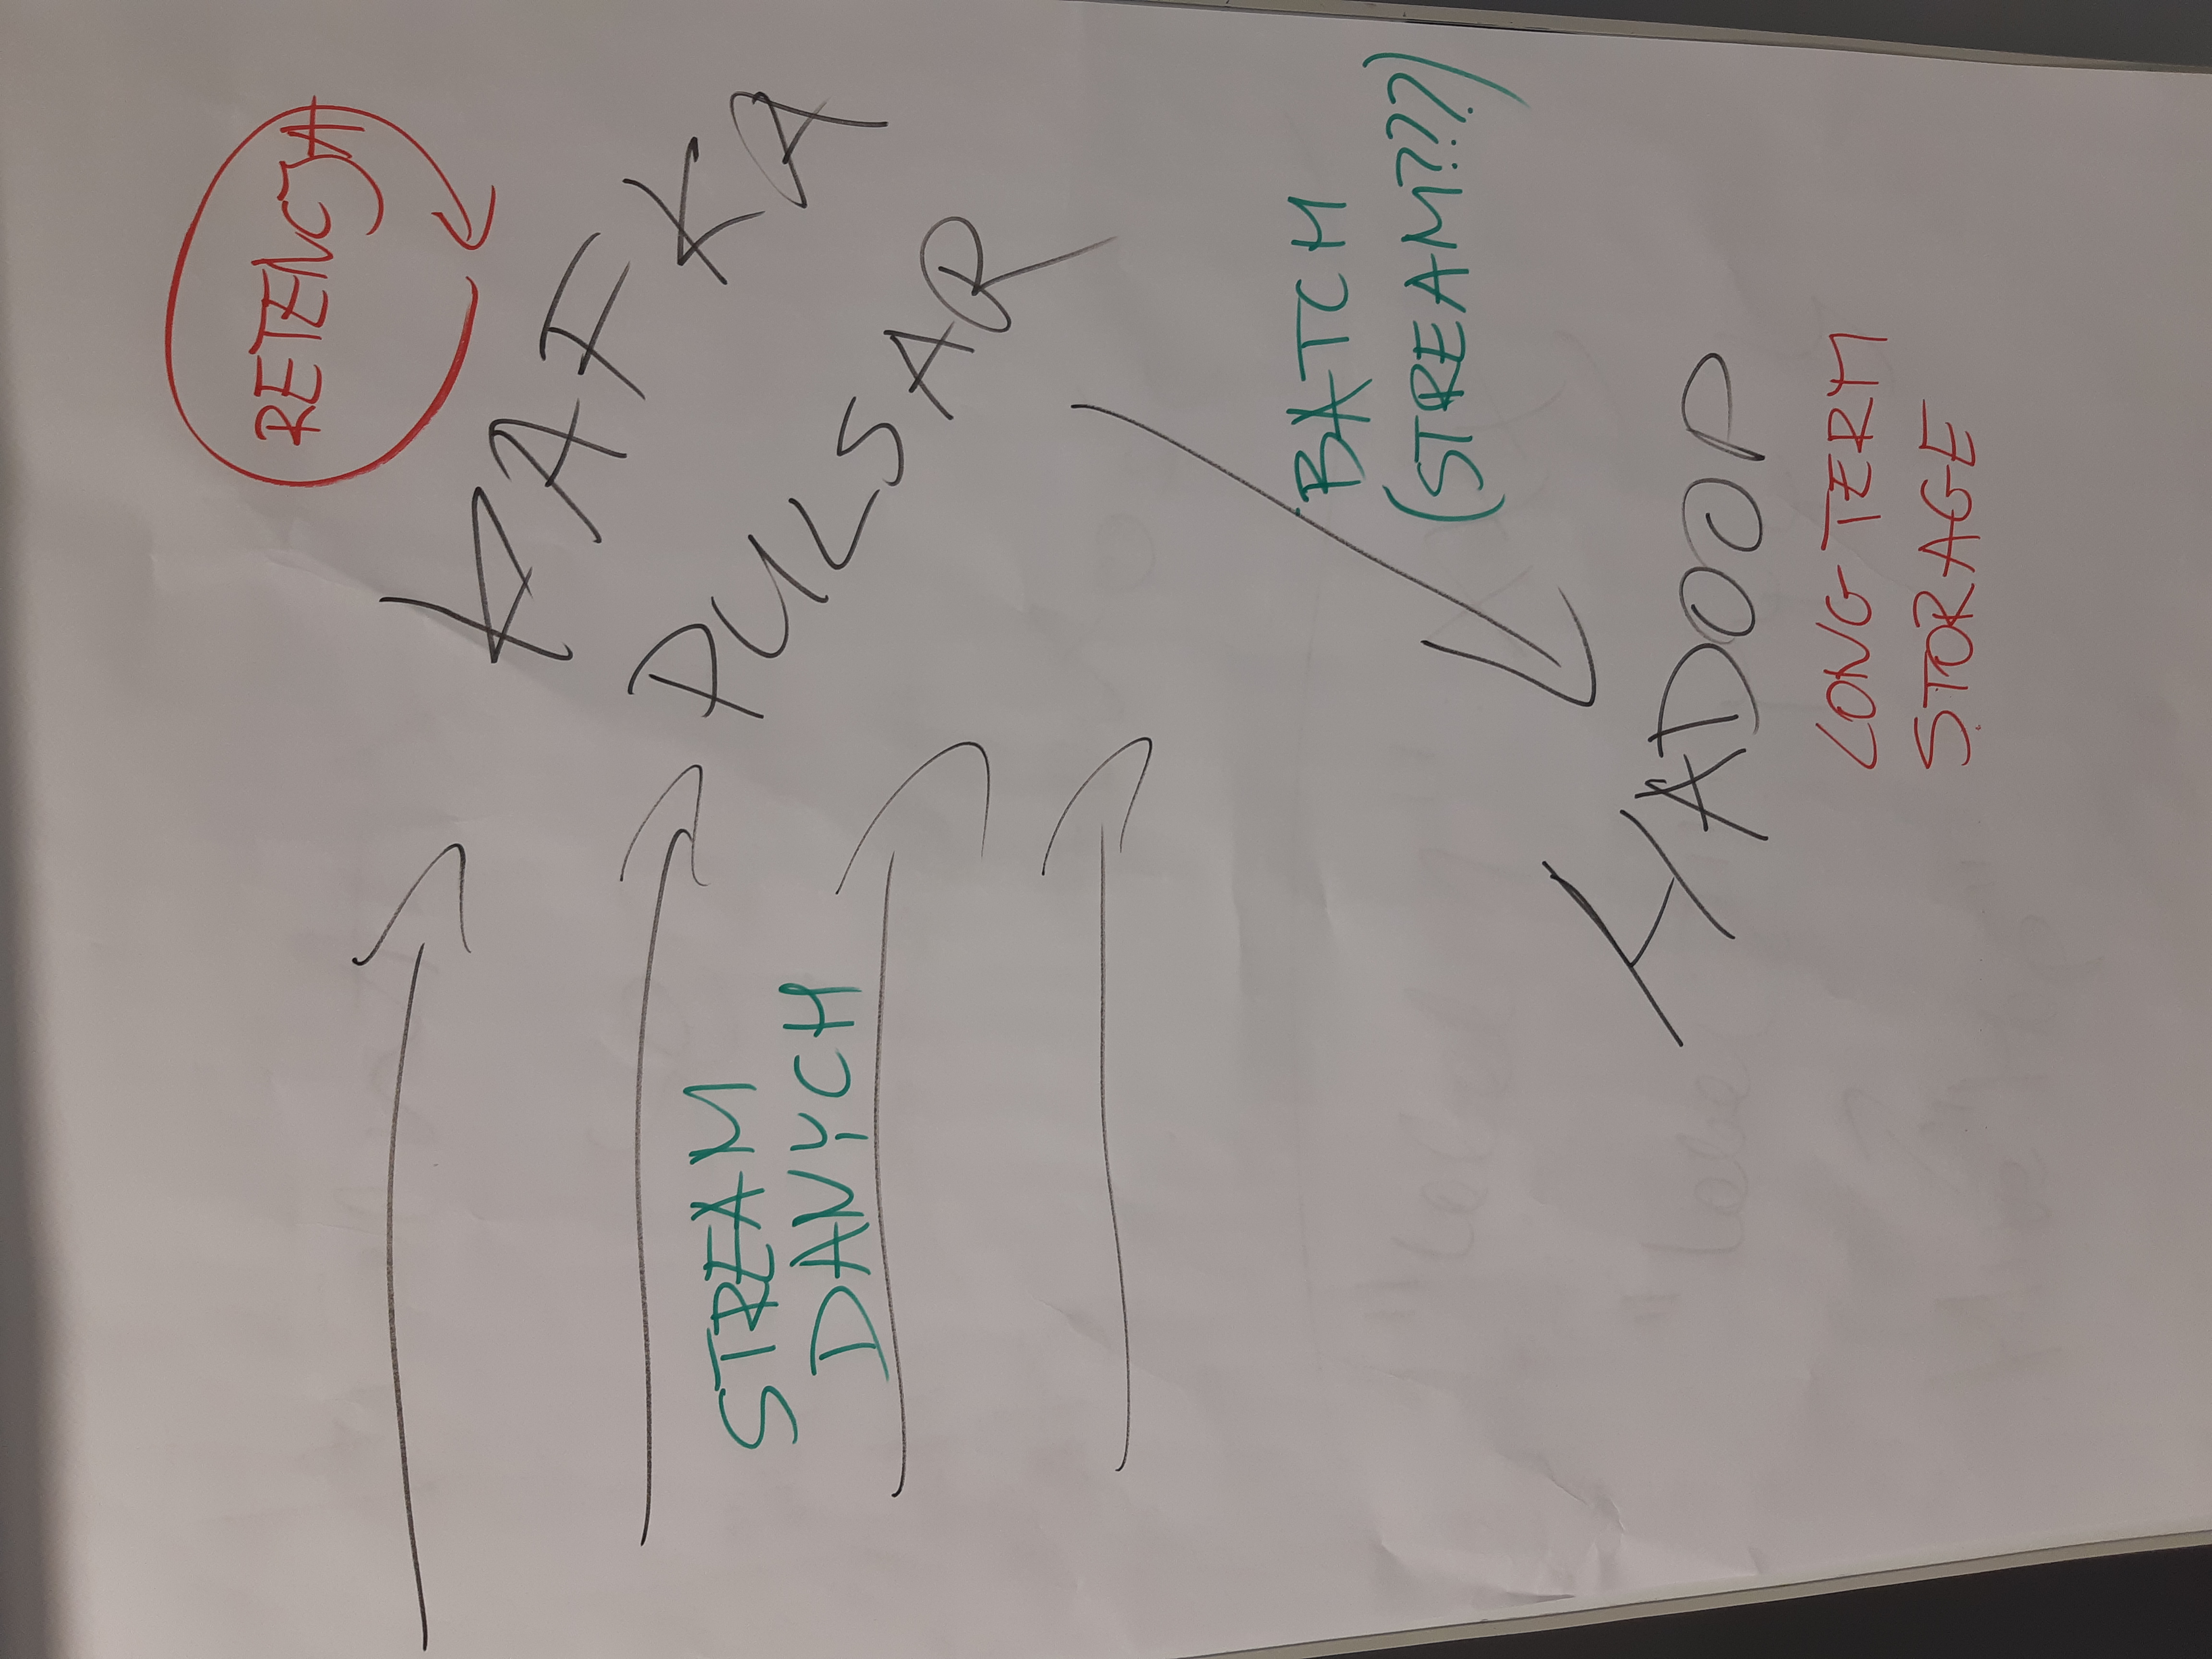 RETENCJA
KAFKA
PULSAR
STREAM
DANYCH
BATCH
(STREAM???)
HADOOP
LONG TERM
STORAGE